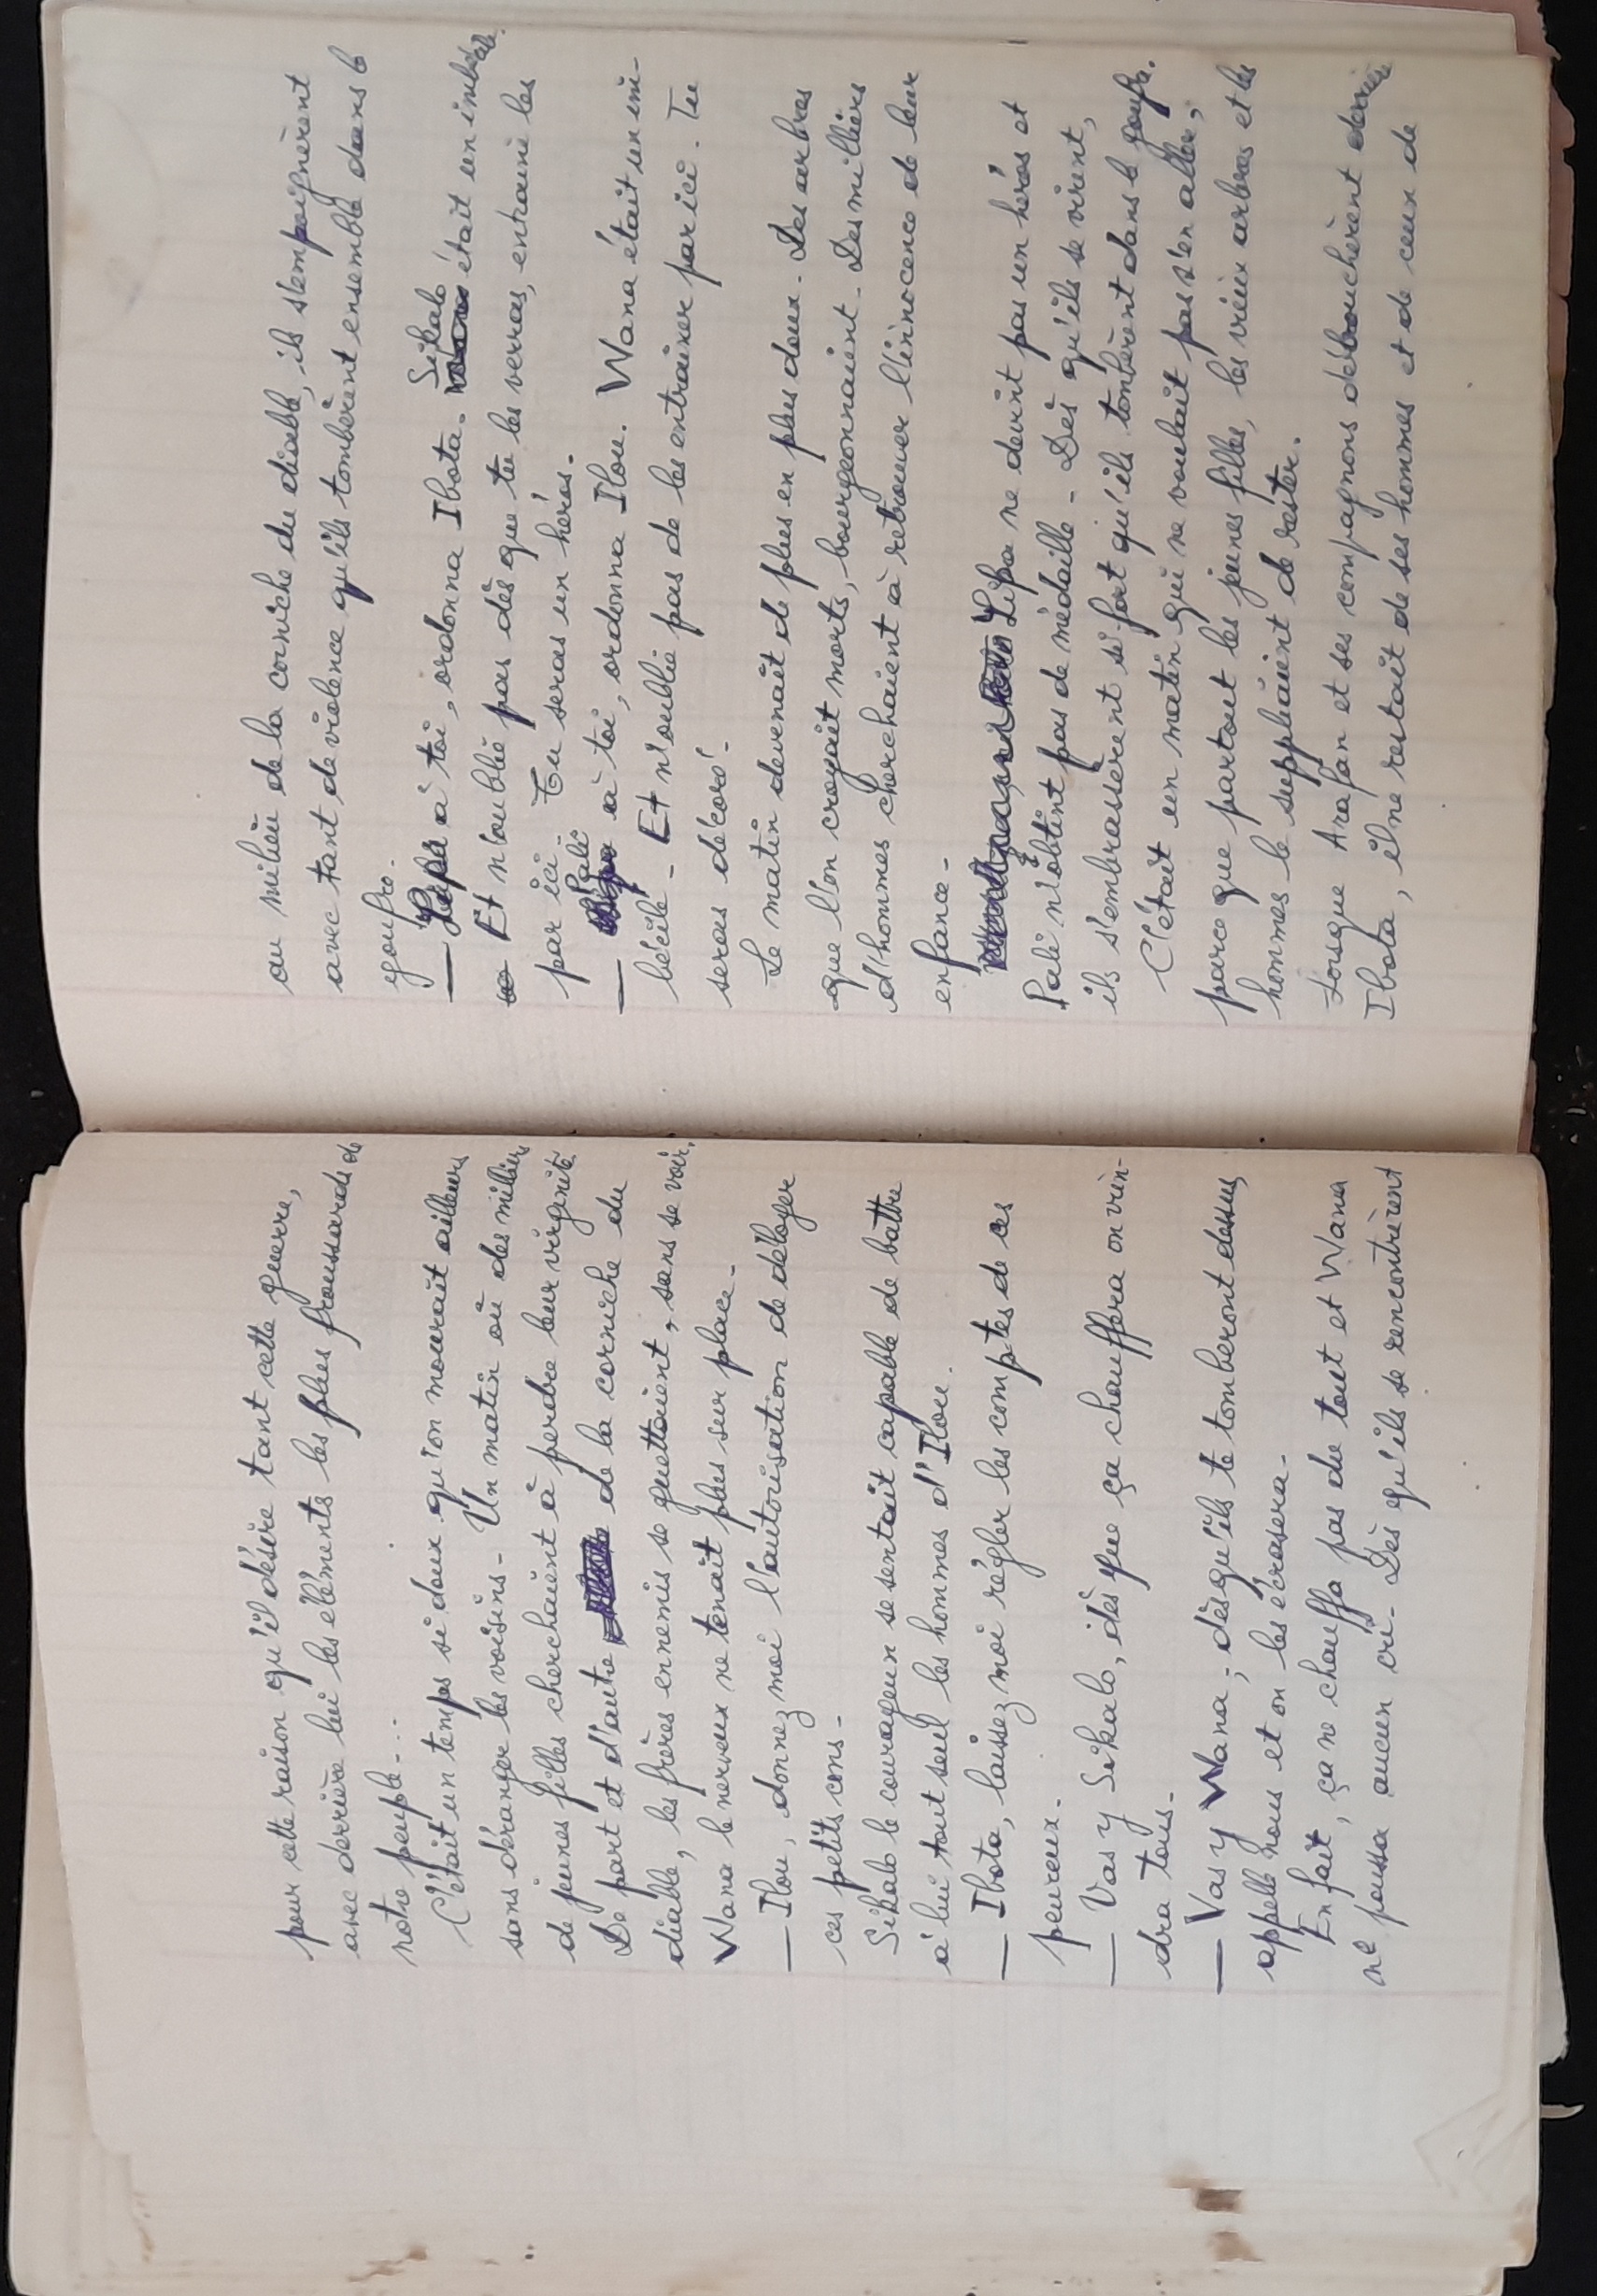 pour cette raison qu'il désire tant cette guerre,
avec derrière lui les éléments les plus froussards de
notre peuple...
C'était un temps si doux qu'on mourait ailleurs
sans déranger les voisins - Un matin où des milliers
de jeunes filles cherchaient à perdre leur virginité.
De part et d'autre de la corniche du
diable, les frères ennemis se guettaient, sans se voir.
Wana le nerveux ne tenait plus sur place -
— Ilou, donnez moi l'autorisation de déloger
ces petits cons -
Sikalo le courageux se sentait capable de battre
à lui tout seul les hommes d'Ilou.
— Ibota, laissez moi régler les comptes de ces
peureux.
— Vas y Sikalo, dès que ça chauffera on vien-
dra tous.
— Vas y Wana, dès qu'ils te tomberont dessus,
appelle nous et on les écrasera -
En fait, ça ne chauffa pas du tout et Wana
ne poussa aucun cri - Dès qu'ils se rencontrèrent
au milieu de la corniche du diable, ils s'empoignèrent
avec tant de violence qu'ils tombèrent ensemble dans le
gouffre.
— Lipa à toi, ordonna Ibota. Sikalo était un imbécile.
Et n'oublie pas dès que tu les verras, entraine les
par ici - Tu seras un héros.
— Pali à toi, ordonna Ilou. Wana était un im-
bécile - Et n'oublie pas de les entrainer par ici - Tu
seras décoré -
Le matin devenait de plus en plus doux - Des arbres
que l'on croyait morts, bourgeonnaient - Des milliers
d'hommes cherchaient à retrouver l'innocence de leur
enfance -
Lipa ne devint pas un héros et
Pali n'obtint pas de médaille - Dès qu'ils se virent,
ils s'embrassèrent si fort qu'ils tombèrent dans le gouffre.
C'était un matin qui ne voulait pas s'en aller,
parce que partout les jeunes filles, les vieux arbres et les
hommes le suppliaient de rester.
Lorsque Arafan et ses compagnons débouchèrent derrière
Ibota, il ne restait de ses hommes et de ceux de